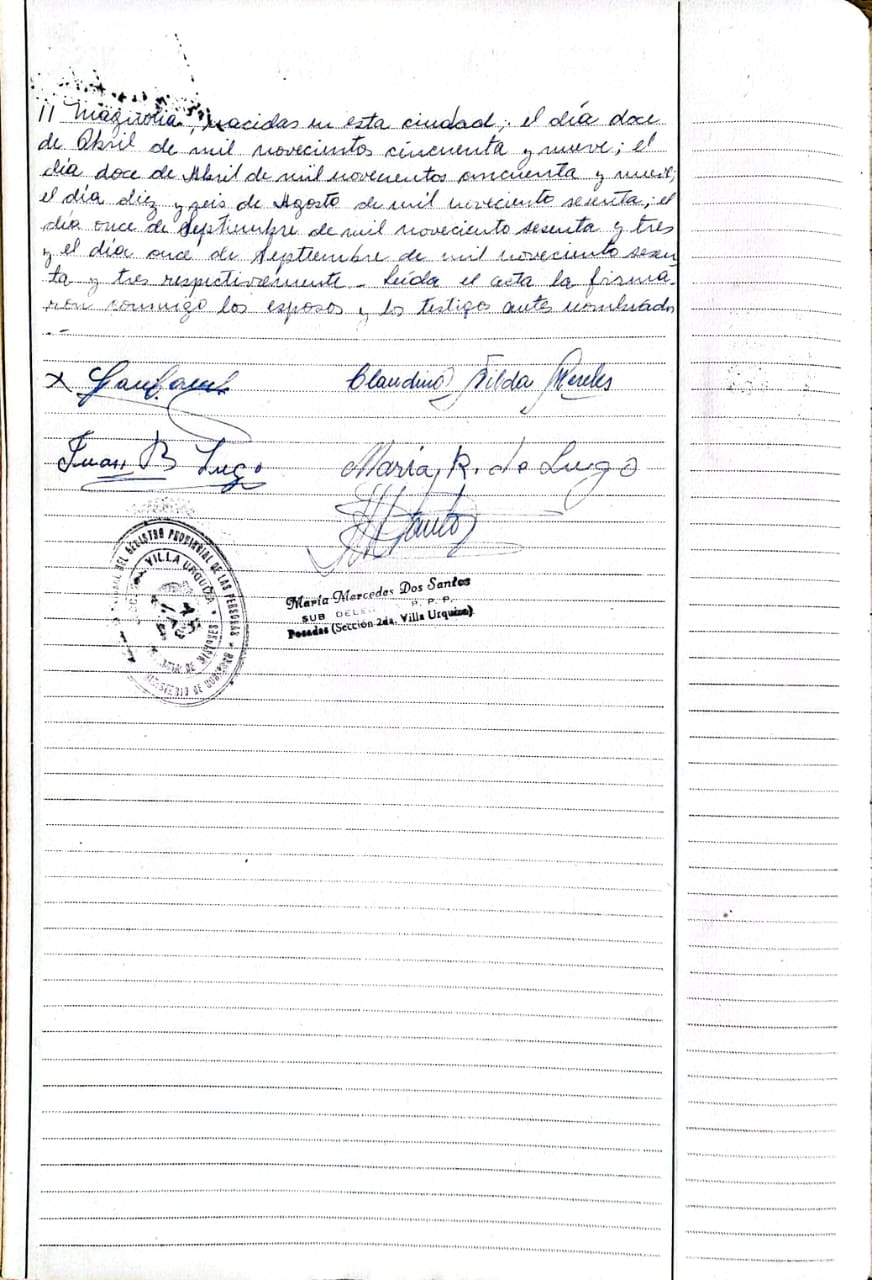 11 Magnolia, nacidas en esta ciudad; el día doce
de Abril de mil novecientos cincuenta y nueve; el
día doce de Abril de mil novecientos cincuenta y nueve;
el día diez y seis de Agosto de mil noveciento sesenta; el
día once de Septiembre de mil noveciento sesenta y tres
y el día once de Septiembre de mil noveciento sesen-
ta y tres respectivamente - Leída el acta la firma-
ron conmigo los esposos y los testigos antes nombrados
--
X
Claudina Nilda
Juan B Lugo
María R. de Lugo
María Mercedes Dos Santos
SUB DELE P. P. P.
Posadas (Sección 2da. Villa Urquiza)
DEL REGISTRO PROVINCIAL DE LAS PERSONAS
VILLA URQUIZA
MINISTERIO DE